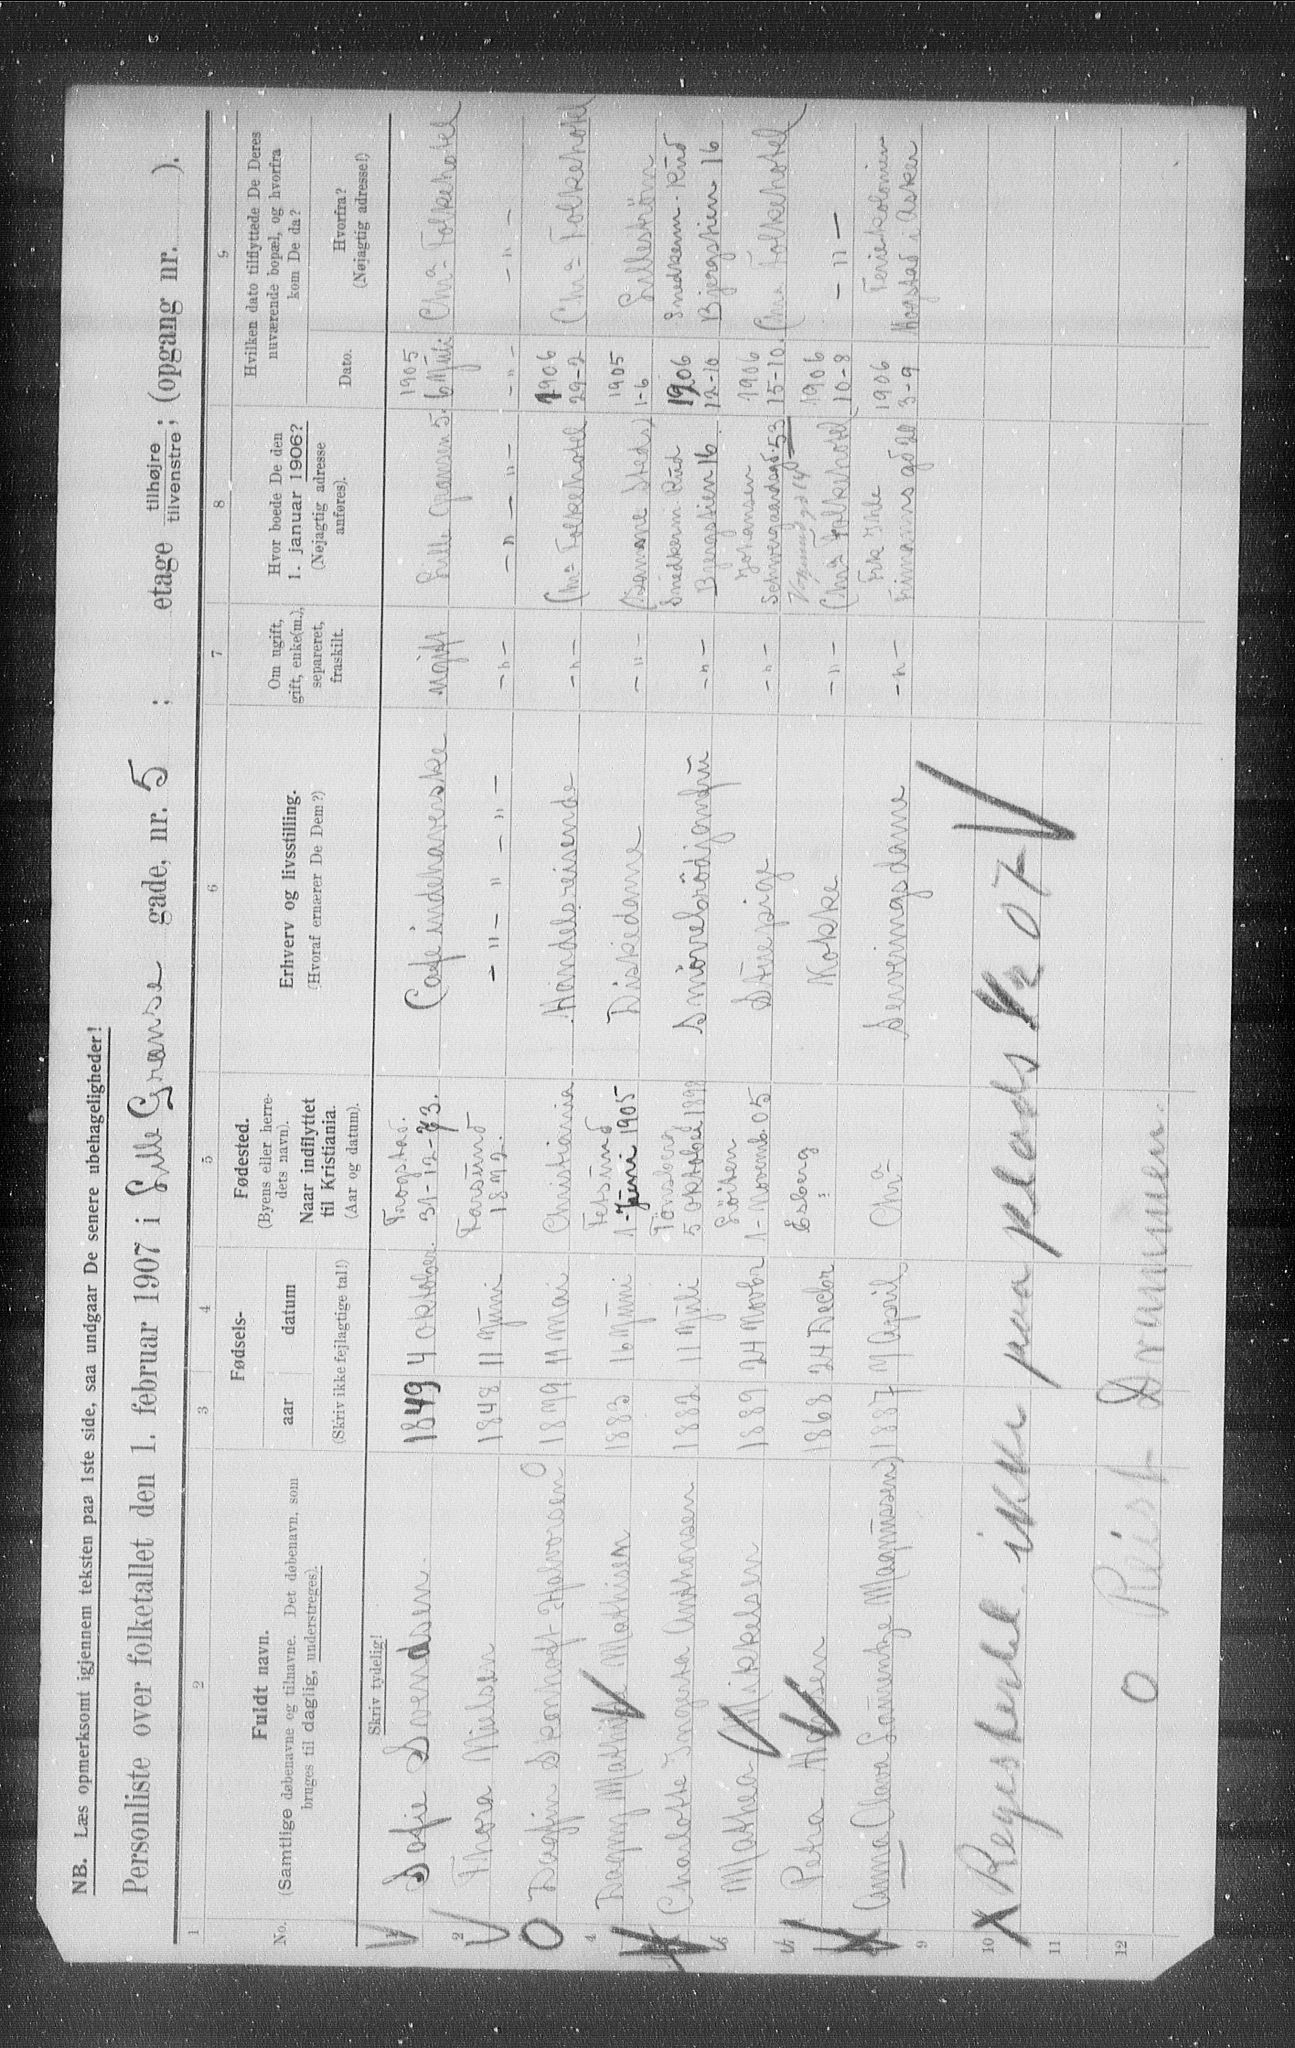 NB. Læs opmerksomt igjennem teksten paa 1ste side, saa undgaar De senere ubehageligheder!
Personliste over folketallet den 1. februar 1907 i Lille Grænse gade, nr. 5 ; etage tilhøjre / tilvenstre; (opgang nr. ).
1 2 3 4 5 6 7 8 9
No.
Fuldt navn.
(Samtlige døbenavne og tilnavne. Det døbenavn, som
bruges til daglig, understreges).
Fødsels-
aar datum
(Skriv ikke fejlagtige tal!)
Fødested.
(Byens eller herre-
dets navn).
Naar indflyttet
til Kristiania.
(Aar og datum).
Erhverv og livsstilling.
(Hvoraf ernærer De Dem?)
Om ugift,
gift, enke(m.),
separeret,
fraskilt.
Hvor boede De den
1. januar 1906?
(Nøjagtig adresse
anføres).
Hvilken dato tilflyttede De Deres
nuværende bopæl, og hvorfra
kom De da?
Dato.
Hvorfra?
(Nøjagtig adresse!)
Skriv tydelig!
Sofie Svendsen. 1849 4 oktober. Trogstad. 31-12-73. Café indehaverske ugift Lille Grænsen 5. 1905 6 Juli Chra Folkehotel
2 Thora Nielsen 1848 11 Juni Farsund 1892. - " - " - " - - " - - " - " - - " - - " -
Dagfin Skanhoft Halvorsen 1879 11 Mai Christiania Handelsreisende - " - Chra Folkehotel 1906 29-2 Chra Folkehotel
4 Dagny Mathisen 1883 16 Juni Fetsund 1-Juni 1905 Diskedame - " - (Samme Sted) 1905 1-6 Lilleström
Charlotte Ingerta Anthonsen 1882 11 Juli Tönsberg 5 oktober 1898 Smörrebrödjomfru - " - Snedkerm Rud Bjergstien 16. 1906 12-10 Snedkerm. Rud Bjergstien 16
Mathea Mikkelsen 1889 24 Novbr Löiten 1-Novemb. 05 Stuepige - " - Johansen Schweigaardsgd. 53 1906 15-10. Chra Folkehotel
Petra 1868 24 Decbr Esberg Kokke - " - Chra Folkehotel 1906 10-8 - " -
Anna Clava Laurentze Magnussen 1887 7 April Chra Serveringsdame - " - 1906 3-9 Feriekolonien i Asker
9
10
11
12
X Regesterblel ikke paa plads 4/2 07
O Reist Drammen.